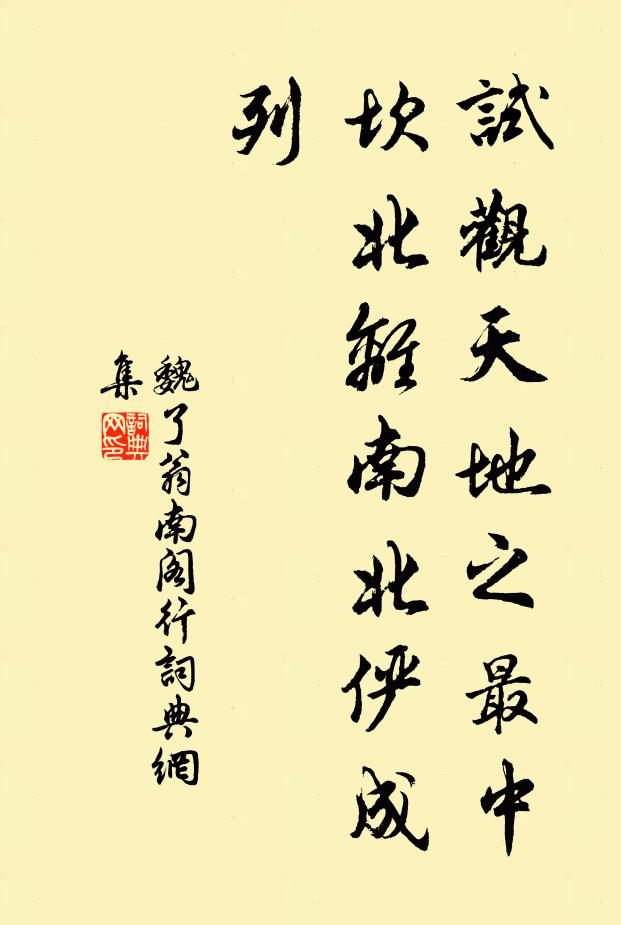 試觀天地之最中
坎北離南北伻成
列
魏了翁南阁行詞典網
集
詞典
网印